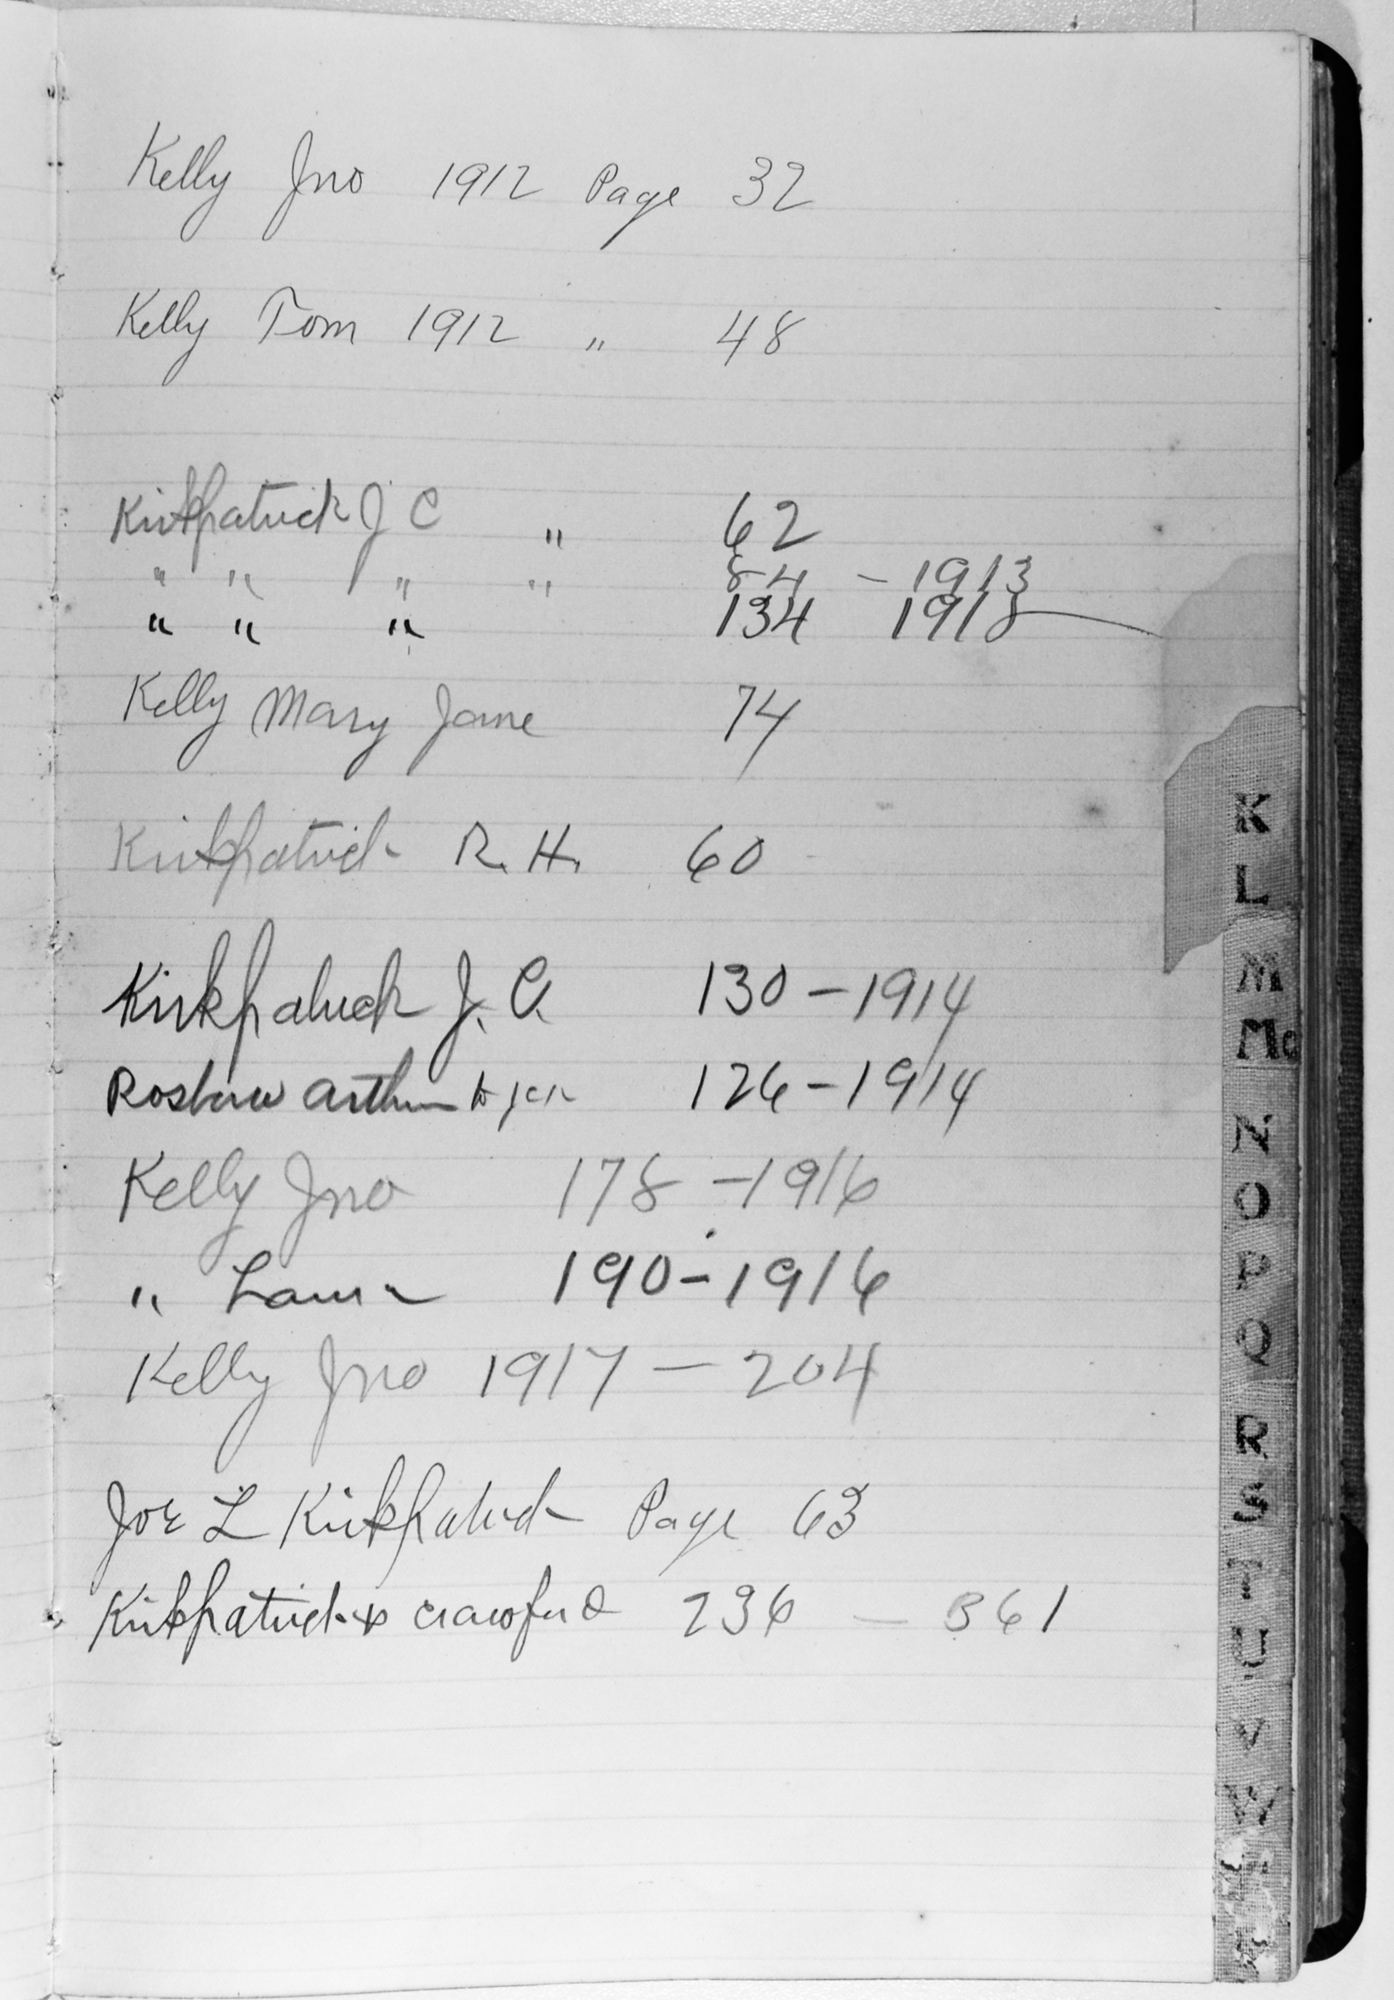 Kelly Jno 1912 Page 32
Kelly Tom 1912 " 48
Kirkpatrick J C " 62
" " " " 84 - 1913
" " " 134 1918
Kelly Mary Jane 74
Kirkpatrick R. H. 60
Kirkpatrick J. C. 130 - 1914
arthur 126 - 1914
Kelly Jno 178 - 1916
" Laura 190 - 1916
Kelly Jno 1917 - 204
Joe L Kirkpatrick Page 63
Kirkpatrick & Crawford 236 - 361
K
L
M
Mc
N
O
P
Q
R
S
T
U
V
W